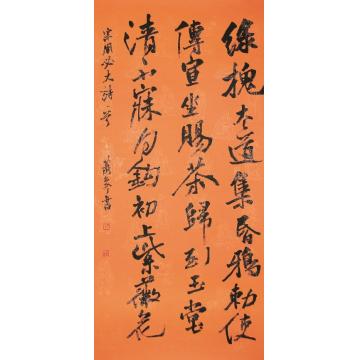 綠槐夾道集昏鴉勅使
傳宣坐賜茶歸到玉堂
清不寐月鈎初上紫薇花
宋周必大詩一首
書